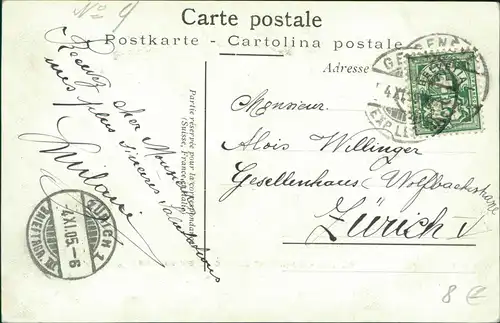 No 9
Carte postale
Postkarte - Cartolina postale
Adresse
Partie réservée pour la correspondance
(Suisse, France, Italie)
Recevez cher Monsieur
mes plus sincères salutations
Monsieur
Alois Willinger
Gesellenhaus Wolfbachstrasse
Zürich V
GENÈVE
EXP. LET.
ZÜRICH 1
-4.XI.05.-6
BRIEFTRÄGER
8 €